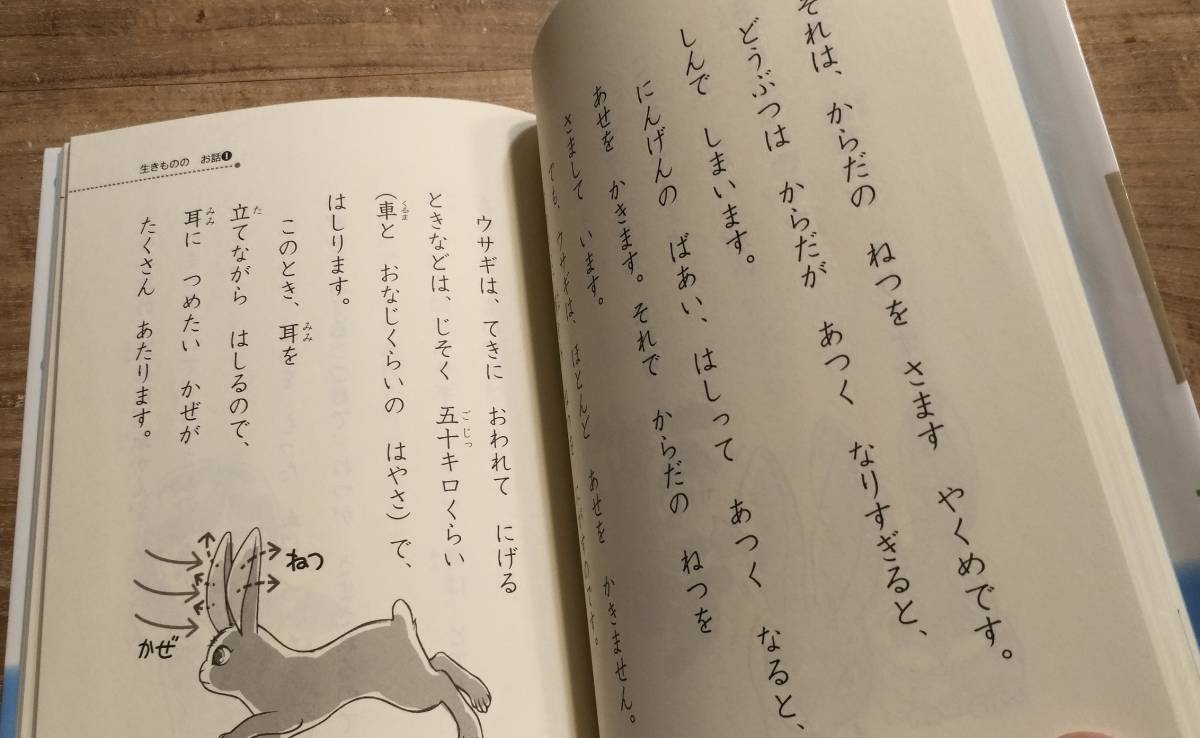 それは、からだの ねつを さます やくめです。
どうぶつは からだが あつく なりすぎると、
しんで しまいます。
にんげんの ばあい、はしって あつく なると、
あせを かきます。それで からだの ねつを
さまして います。
でも、ウサギは、ほとんど あせを かきません。
生きものの お話❶
ウサギは、てきに おわれて にげる
ときなどは、じそく 五十キロくらい
ごじっ
(車と おなじくらいの はやさ)で、
くるま
はしります。
このとき、耳を
みみ
立てながら はしるので、
た
耳に つめたい かぜが
みみ
たくさん あたります。
ねつ
かぜ